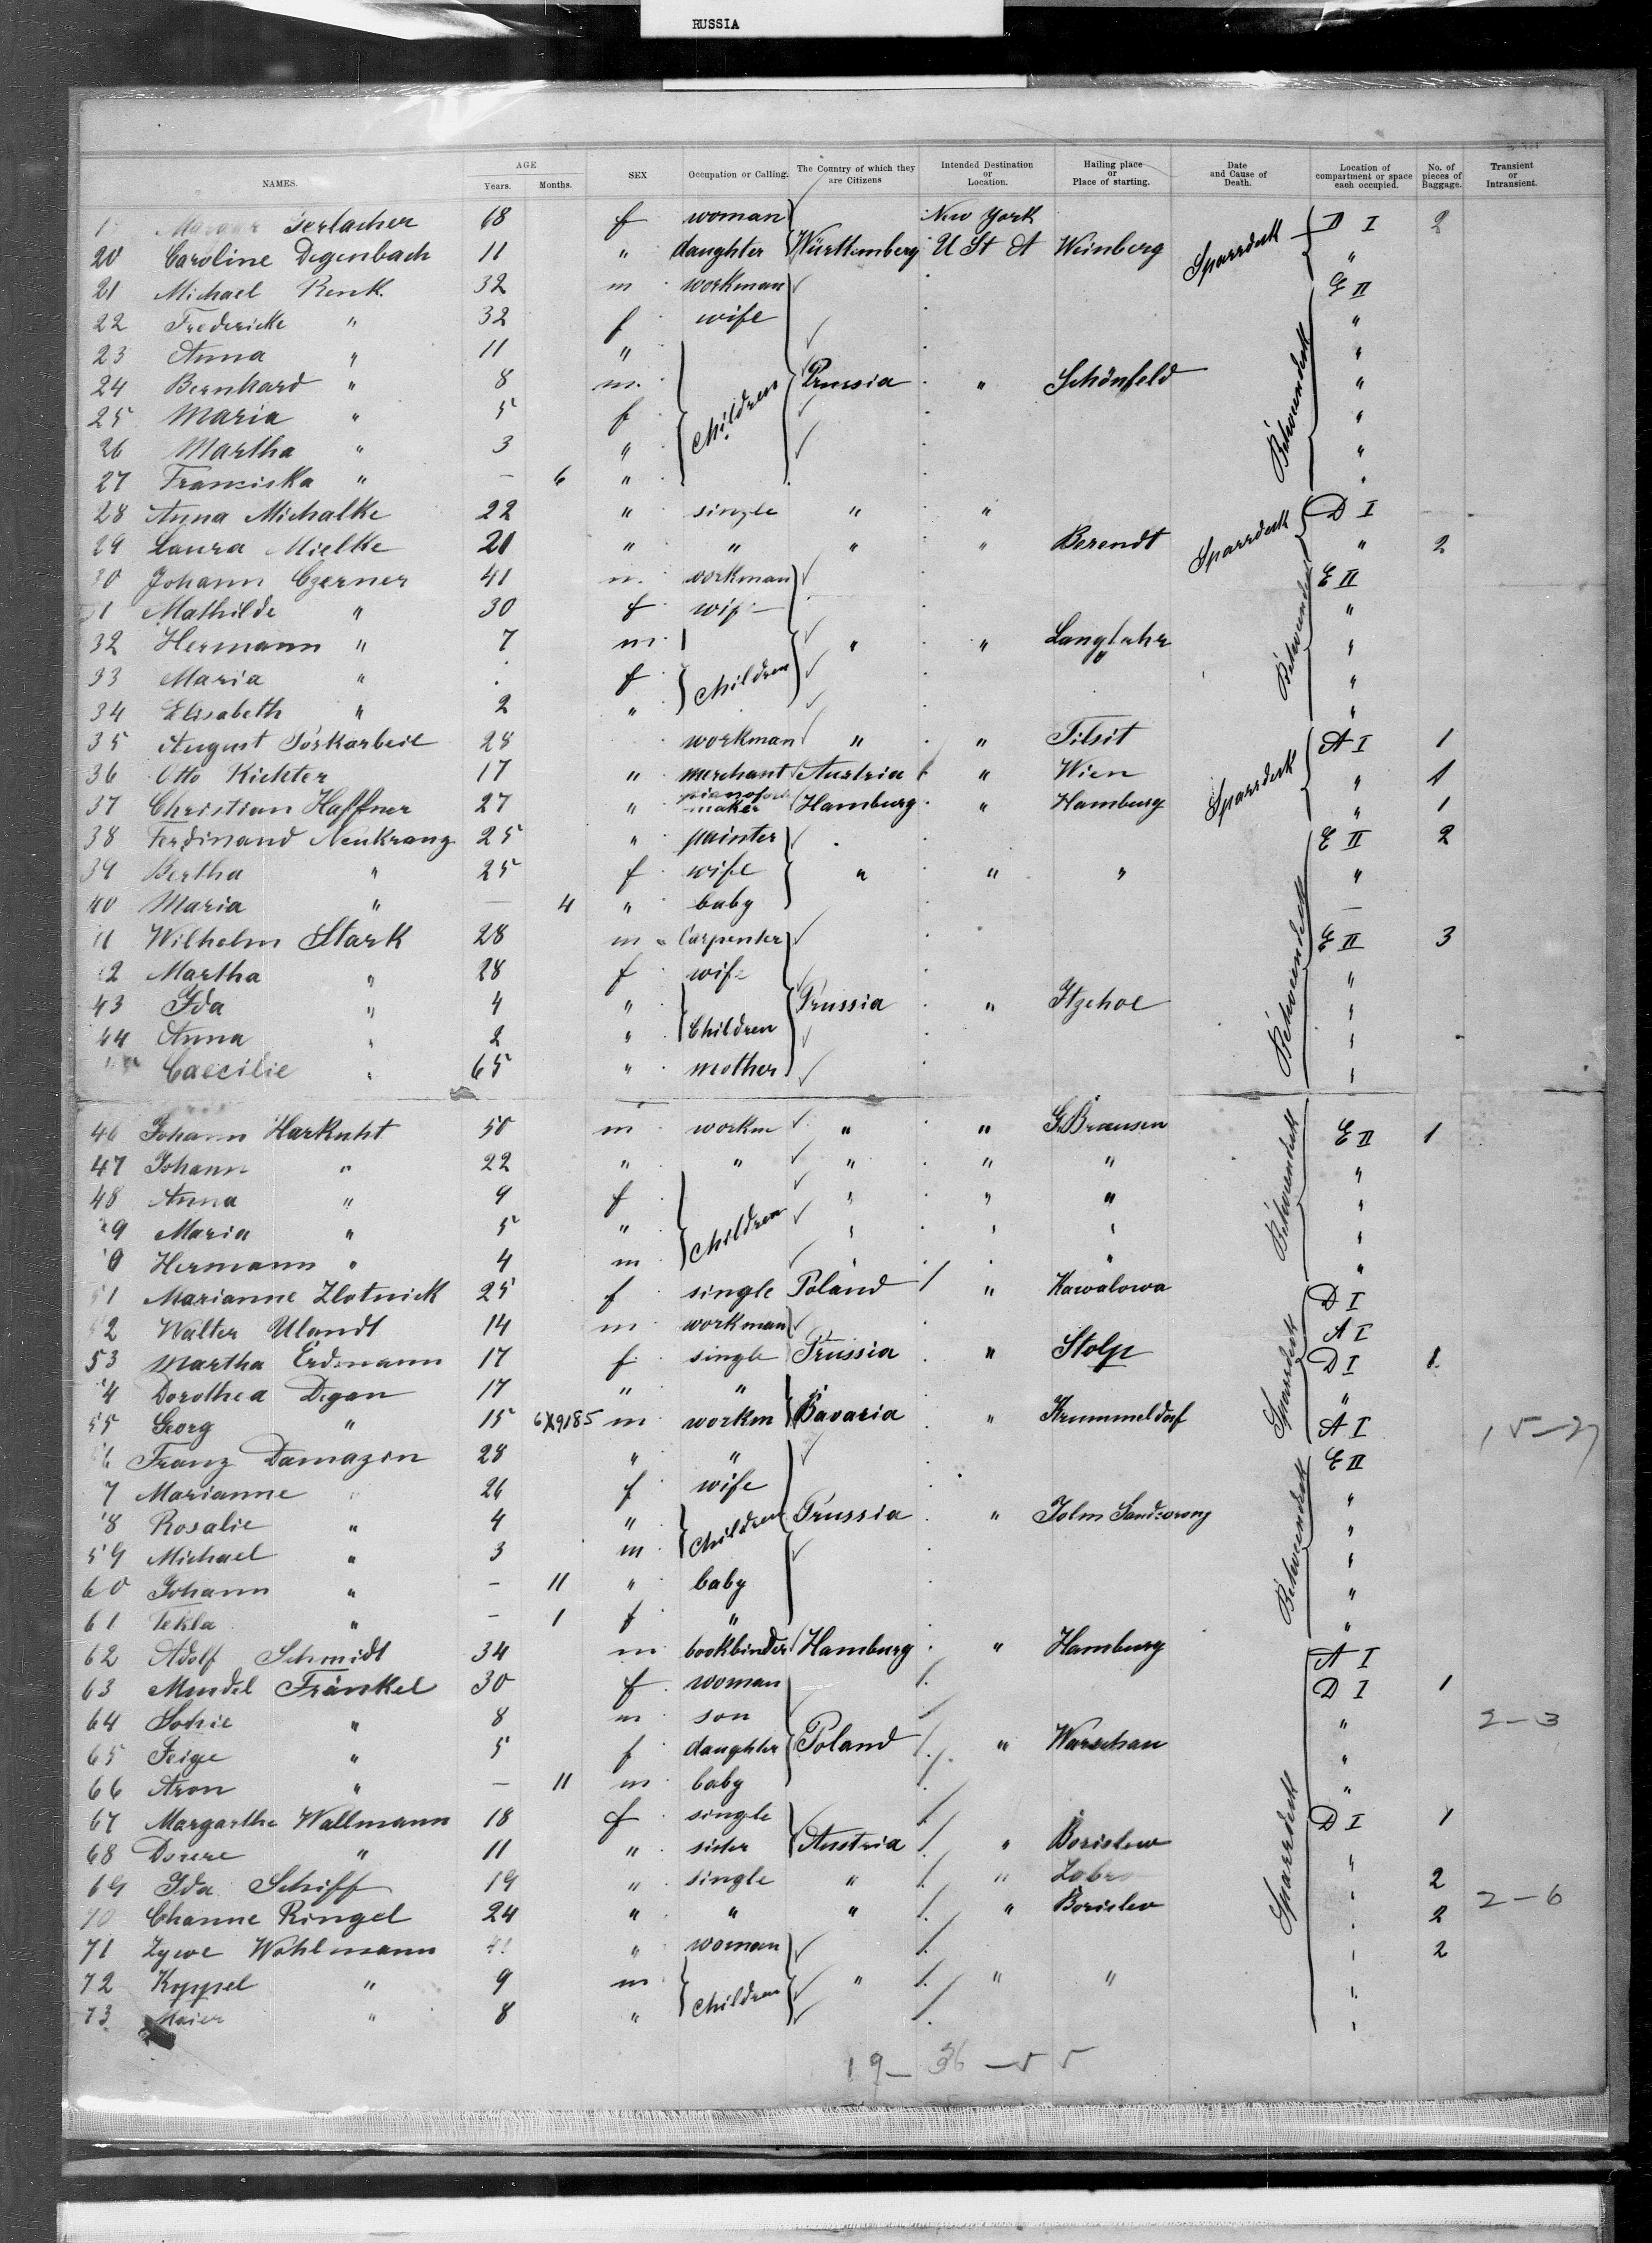 RUSSIA
NAMES. AGE Years. Months. SEX Occupation or Calling. The Country of which they are Citizens Intended Destination or Location. Hailing place or Place of starting. Date and Cause of Death. Location of compartment or space each occupied. No. of pieces of Baggage. Transient or Intransient.
Gerlacher 68 f woman New York D I 2
20 Caroline Degenbach 11 " daughter Württemberg U St A Weinberg Sparrdeck "
21 Michael Renk 32 m workman E II
22 Fredericke " 32 f wife "
23 Anna " 11 " "
24 Bernhard " 8 m. Children Prussia " Schönfeld Betweendeck "
25 Maria " 5 f "
26 Martha " 3 " "
27 Franziska " — 6 " "
28 Anna Michalke 22 " single " " D I
29 Laura Mielke 21 " " " " Berendt Sparrdeck " 2
30 Johann Czerner 41 m. workman E II
31 Mathilde " 30 f wife "
32 Hermann " 7 m " " Langfuhr Betweendeck "
33 Maria " f Children "
34 Elisabeth " 2 " "
35 August 28 workman " " Tilsit A I 1
36 Otto Richter 17 " merchant Austria " Wien Sparrdeck " 1
37 Christian Haffner 27 " pianoforte maker Hamburg " Hamburg " 1
38 Ferdinand Neukranz 25 " painter E II 2
39 Bertha " 25 f wife " " " "
40 Maria " — 4 " baby —
41 Wilhelm Stark 28 m Carpenter E II 3
42 Martha " 28 f wife Betweendeck "
43 Ida " 4 " Prussia " Itzehoe "
44 Anna " 2 " Children "
Caecilie " 65 " mother "
46 Johann Harkuht 50 m workm " " G. Brausen E II 1
47 Johann " 22 " " " " " "
48 Anna " 9 f " " " Betweendeck "
49 Maria " 5 " Children " " " "
50 Hermann " 4 m " "
51 Marianne Zlotnick 25 f single Poland " Kawalowa D I
52 Walter Ulandt 14 m workman A I
53 Martha Erdmann 17 f single Prussia " Stolp Sparrdeck D I 1
54 Dorothea Degan 17 " " "
55 Georg " 15 6X9185 m workm Bavaria " Krummeldorf A I 15-27
56 Franz Damazon 28 " " E II
57 Marianne " 26 f wife "
58 Rosalie " 4 " Children Prussia " Betweendeck "
59 Michael " 3 m "
60 Johann " — 11 " baby "
61 Tekla " — 1 f " "
62 Adolf Schmidt 34 m bookbinder Hamburg " Hamburg A I
63 Mendel Fränkel 30 f woman D I 1
64 " 8 m son " 2-3
65 Feige " 5 f daughter Poland " Warschau "
66 Aron " — 11 m baby "
67 Margarthe Wallmann 18 f single D I 1
68 Dorere " 11 " sister Austria " Borislew Sparrdeck "
69 Ida Schiff 19 " single " " " 2
70 Channe Ringel 24 " " " " Borislev " 2 2-6
71 Zywe Wohlmann " woman " 2
72 Koppel " 9 m Children " " " "
73 Maier " 8 " "
19-36-55